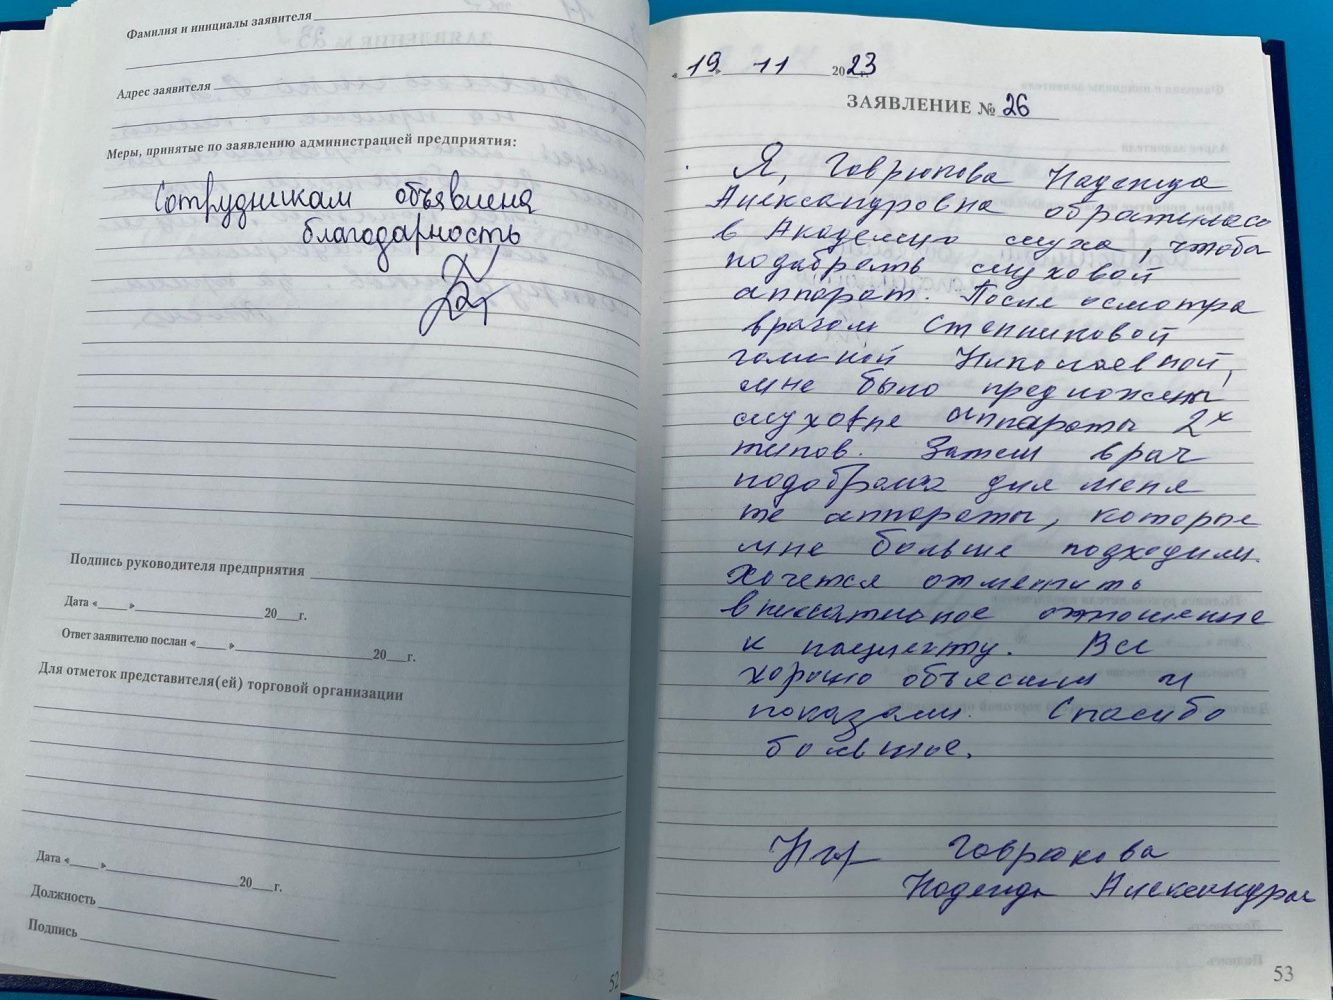 Фамилия и инициалы заявителя
Адрес заявителя
Меры, принятые по заявлению администрацией предприятия:
Сотрудникам объявлена
благодарность
Подпись руководителя предприятия
Дата «____» 20__г.
Ответ заявителю послан «____» 20__г.
Для отметок представителя(ей) торговой организации
Дата «____» 20__г.
Должность
Подпись
52
« 19 » 11 2023 г.
ЗАЯВЛЕНИЕ № 26
Я, Гаврюкова Надежда
Александровна обратилась
в Академию слуха, чтобы
подобрать слуховой
аппарат. После осмотра
врачом Степниковой
Галиной Николаевной,
мне было предложены
слуховые аппараты 2х
типов. Затем врач
подобрала для меня
те аппараты, которые
мне больше подходили.
Хочется отметить
внимательное отношение
к пациенту. Все
хорошо объяснили и
показали. Спасибо
большое.
Гаврюкова
Надежда Александровна
53